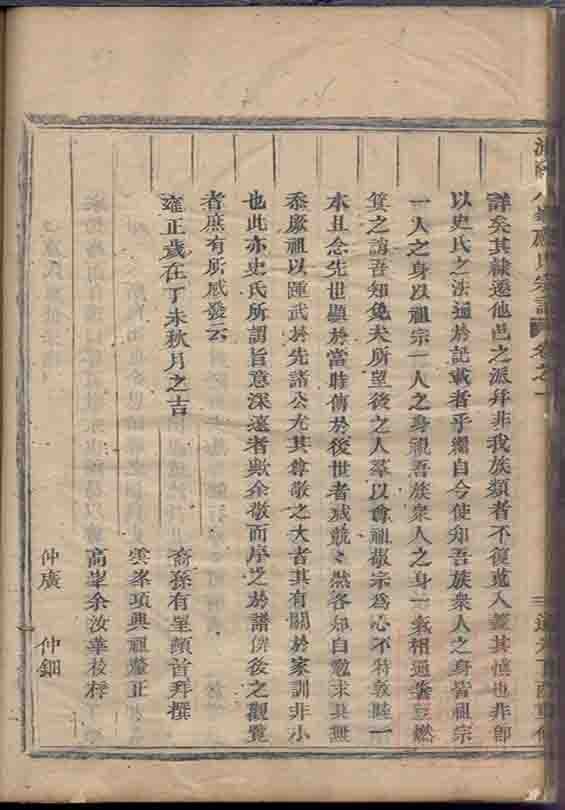 詳矣其隸遷他邑之派幷非我族類者不復入其慎也非卽
以史氏之法通於記載者乎繼自今使知吾族衆人之身皆祖宗
一人之身以祖宗一人之身視吾族衆人之身一氣相通豆燃
箕之誚吾知免矣所望後之人羣以尊祖敬宗爲心不特敦睦一
本且念先世顯於當時傳於後世者咸兢々然各知自勉求其無
忝厥祖以踵武於先諸公尤其尊敬之大者其有關於家訓非小
也此亦史氏所謂旨意深遠者歟余敬而序之於譜俾後之觀覽
者庶有所感發云
雍正歲在丁未秋月之吉
裔孫有星頓首拜撰
雲峯項興祖鑒正
高峯余汝華校梓
仲廣 仲鈿
宗譜 卷之一